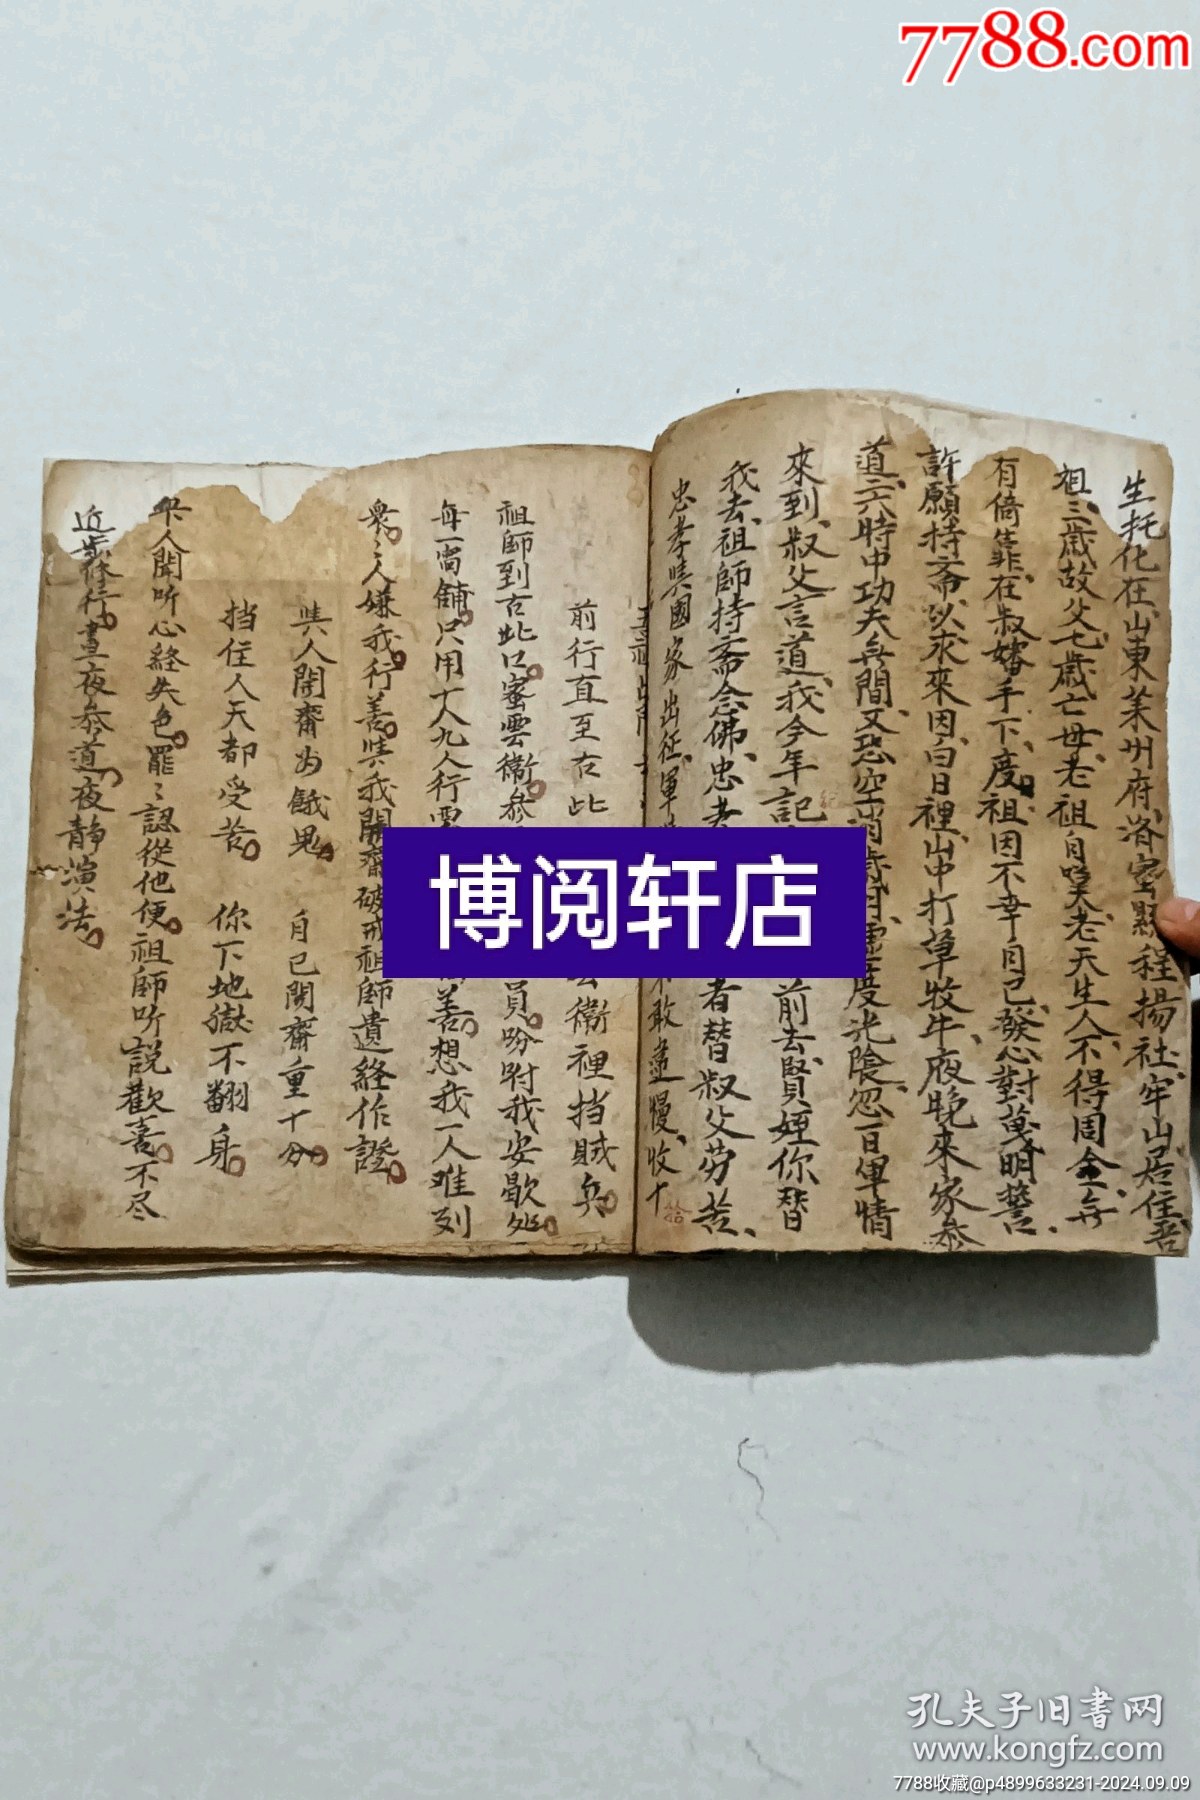 7788.com
生托化在山東莱州府洛宻縣程揚社牢山居住吾
祖三歳故父七歳亡母老祖自嘆老天生人不得周全無
有倚靠在叔嬸手下度祖因不幸自己發心對萬明誓
許願持斋以求來因白日裡山中打草牧牛夜晚來家参
道二六時中功夫無間又恐空消歳月虛度光陰忽一日軍情
來到叔父言道我今年記 前去賢姪你替
我去祖師持斋念佛忠孝 者替叔父劳苦
忠孝與國家出征軍 不敢違慢收十
紀
拾
前行直至古北 衛裡挡贼兵
祖師到古北口蜜雲衞参 員吩咐我安歇处
每一窩舖只用十人九人行 善想我一人难列
衆〻人嫌我行善與我開齋破戒祖師遺経作證
與人開齋为餓鬼 自己開齋重十分
挡住人天都受苦 你下地獄不翻身
人聞听心経失色罷〻認從他便祖師听説歡喜不尽
近步修行晝夜参道夜静演法
博阅轩店
孔夫子旧书网
www.kongfz.com
7788收藏@p4899633231-2024.09.09